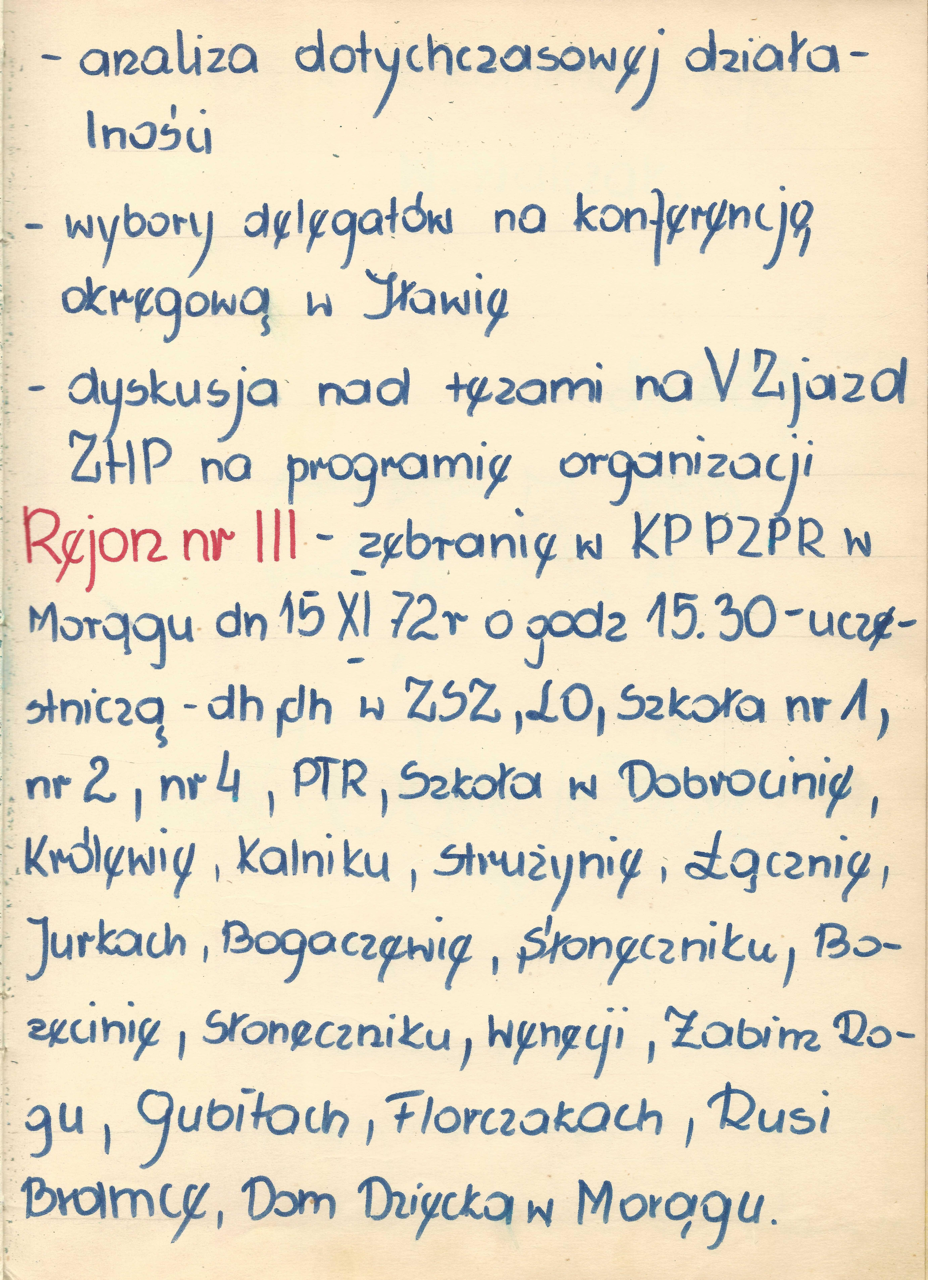 - analiza dotychczasowej działa-
lności
- wybory delegatów na konferencję
okręgową w Iławie
- dyskusja nad tezami na V Zjazd
ZHP na programie organizacji
Rejon nr III - zebranie w KP PZPR w
Morągu dn 15 XI 72r o godz 15.30 - ucze-
stniczą - dh dh w ZSZ, LO, Szkoła nr 1,
nr 2, nr 4, PTR, Szkoła w Dobrocinie,
Królewie, Kalniku, Strużynie, Łącznie,
Jurkach, Bogaczewie, Słoneczniku, Bo-
żęcinie, Słoneczniku, Wenecji, Żabim Ro-
gu, Gubiłach, Florczakach, Rusi
Bramce, Dom Dziecka w Morągu.